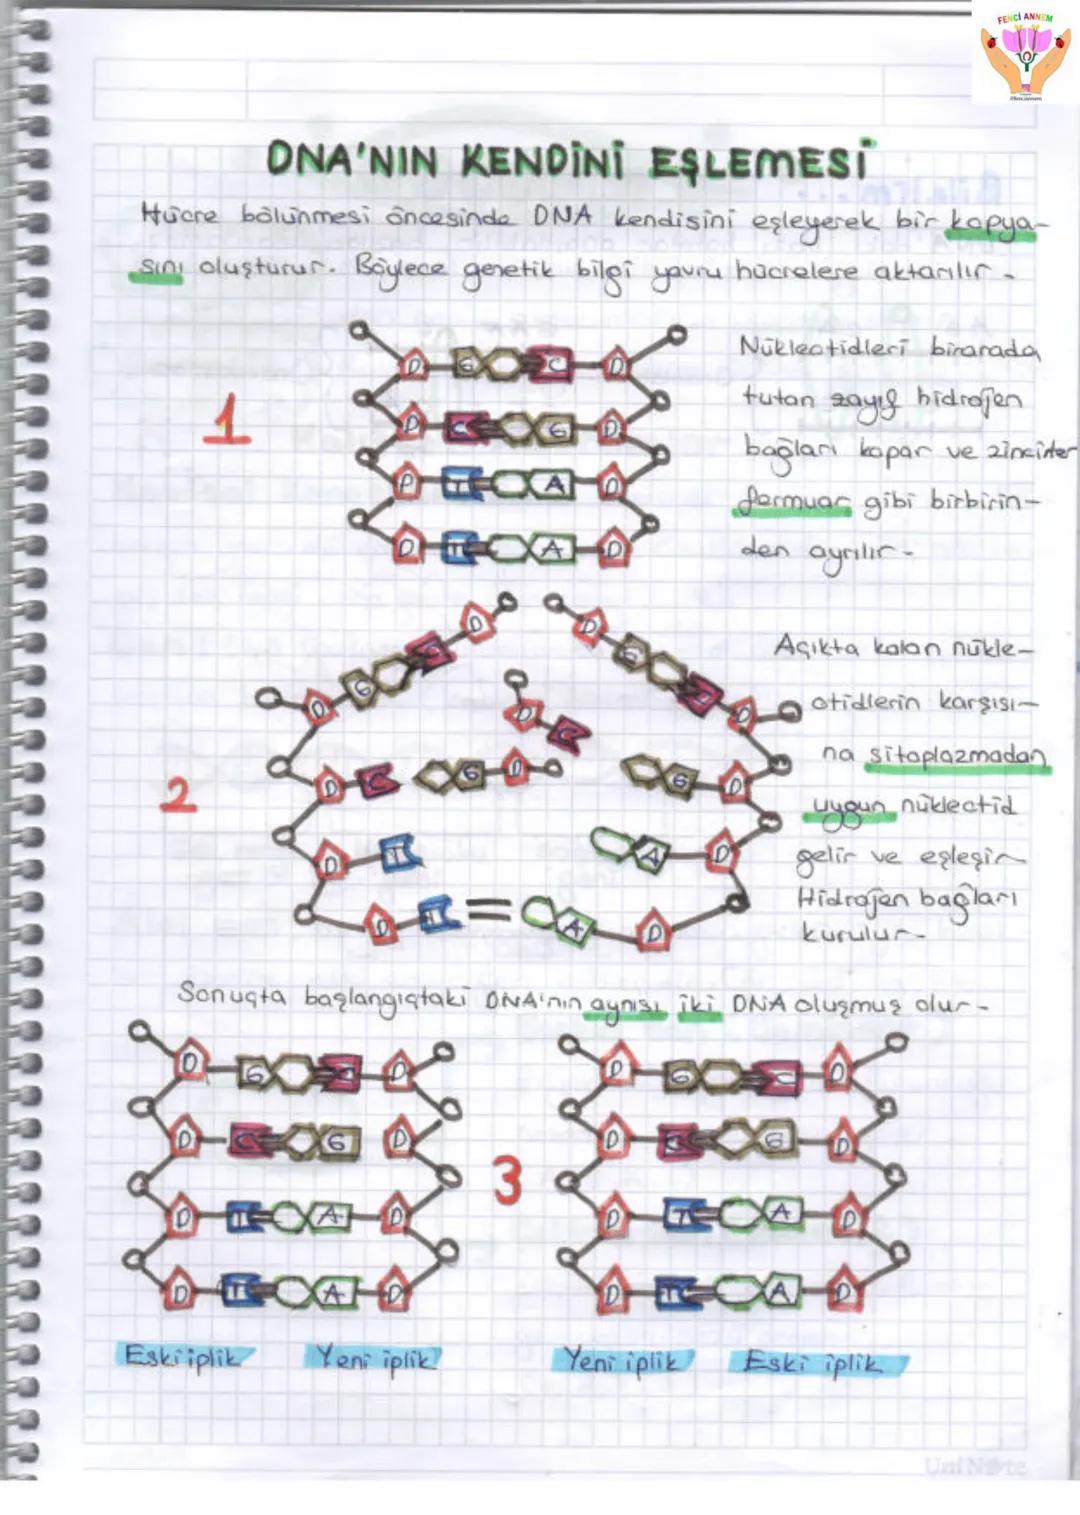 FENCİ ANNEM
DNA'NIN KENDİNİ EŞLEMESİ
Hücre bölünmesi öncesinde DNA kendisini eşleyerek bir kopya-
sını oluşturur. Böylece genetik bilgi yavru hücrelere aktarılır.
1
D G C D
D C G D
D T A D
D T A D
Nükleotidleri birarada
tutan zayıf hidrojen
bağları kopar ve zincirler
fermuar gibi birbirin-
den ayrılır.
2
D D
C G
G D D
D C
D C G D G D
D T A D
D T A D
Açıkta kalan nükle-
otidlerin karşısı-
na sitoplazmadan
uygun nükleotid
gelir ve eşleşir
Hidrojen bağları
kurulur.
Sonuçta başlangıçtaki DNA'nın aynısı iki DNA oluşmuş olur.
D G C D D G C D
D C G D 3 D C G D
D T A D D T A D
D T A D D T A D
Eski iplik Yeni iplik Yeni iplik Eski iplik
UniNote